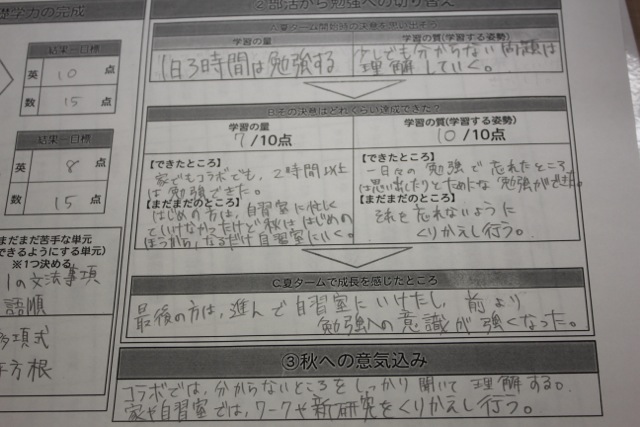 礎学力の完成
②部活から勉強への切り替え
結果ー目標
英 10 点
数 15 点
結果ー目標
英 8 点
数 15 点
まだまだ苦手な単元
できるようにする単元)
※1つ決める
1の文法事項
語順
多項式
平方根
A夏ターム開始時の決意を思い出そう
学習の量
1日3時間は勉強する
学習の質(学習する姿勢)
少しでも分からない問題は
理解していく。
B その決意はどれくらい達成できた?
学習の量
7/10点
【できたところ】
家でもコラボでも、2時間以上
は勉強できた。
【まだまだのところ】
はじめの方は、自習室に忙しく
ていけなかったけど秋ははじめの
ほうから、なるだけ自習室にいく。
学習の質(学習する姿勢)
10/10点
【できたところ】
一日々の勉強で忘れたところ
は思い出したりとためになる勉強ができた。
【まだまだのところ】
それを忘れないように
くりかえし行う。
C夏タームで成長を感じたところ
最後の方は、進んで自習室にいけたし、前より
勉強への意識が強くなった。
③秋への意気込み
コラボでは、分からないところをしっかり聞いて理解する。
家や自習室では、ワークや新研究をくりかえし行う。